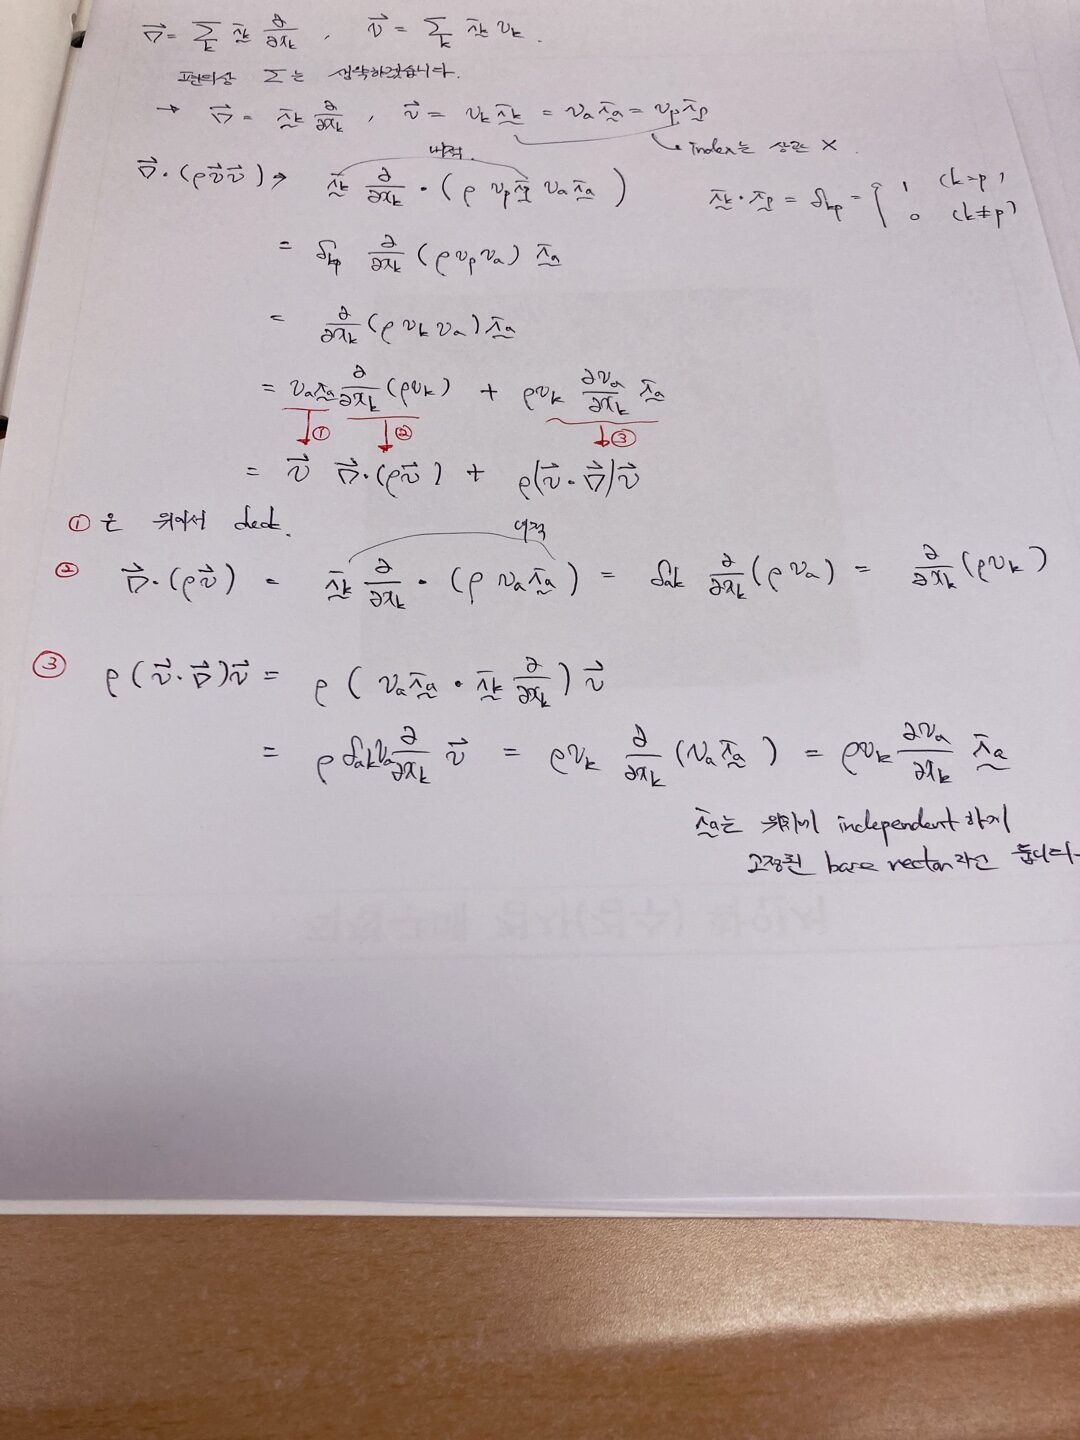 ∇⃗ = Σ_k i̲_k ∂/∂x_k , v⃗ = Σ_k i̲_k v_k .
편의상 Σ는 생략하겠습니다.
→ ∇⃗ = i̲_k ∂/∂x_k , v⃗ = v_k i̲_k = v_a i̲_a = v_p i̲_p
index는 상관 X .
내적.
∇⃗·(ρv⃗v⃗) → i̲_k ∂/∂x_k · (ρ v_p i̲_p v_a i̲_a) i̲_k · i̲_p = δ_kp = { 1 (k=p) , 0 (k≠p)
= δ_kp ∂/∂x_k (ρ v_p v_a) i̲_a
= ∂/∂x_k (ρ v_k v_a) i̲_a
= v_a i̲_a ∂/∂x_k (ρv_k) + ρv_k ∂v_a/∂x_k i̲_a
① ② ③
= v⃗ ∇⃗·(ρv⃗) + ρ(v⃗·∇⃗)v⃗
① 은 위에서 .
내적
② ∇⃗·(ρv⃗) = i̲_k ∂/∂x_k · (ρ v_a i̲_a) = δ_ak ∂/∂x_k (ρ v_a) = ∂/∂x_k (ρv_k)
③ ρ(v⃗·∇⃗)v⃗ = ρ ( v_a i̲_a · i̲_k ∂/∂x_k ) v⃗
= ρ δ_ak v_a ∂/∂x_k v⃗ = ρv_k ∂/∂x_k (v_a i̲_a) = ρv_k ∂v_a/∂x_k i̲_a
i̲_a는 위치에 independent 하게
고정된 base vector라고 둡니다.